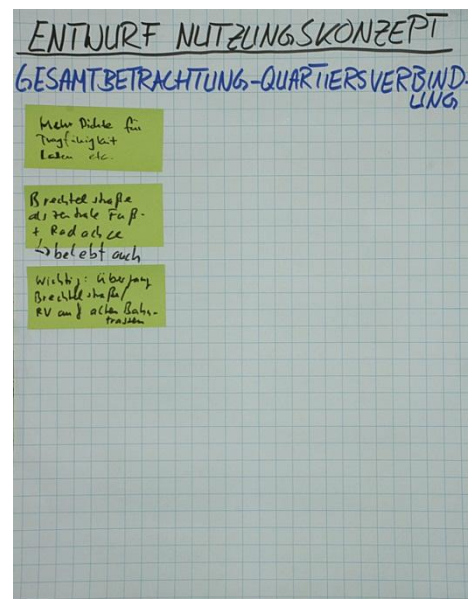 ENTWURF NUTZUNGSKONZEPT
GESAMTBETRACHTUNG-QUARTIERSVERBIND-
UNG
Mehr Dichte für
Tragfähigkeit
Laden etc.
Brechtelstraße
als zentrale Fuß-
+ Radachse
↳ belebt auch
Wichtig: Übergang
Brechtelstraße/
RV auf alten Bahn-
trassen